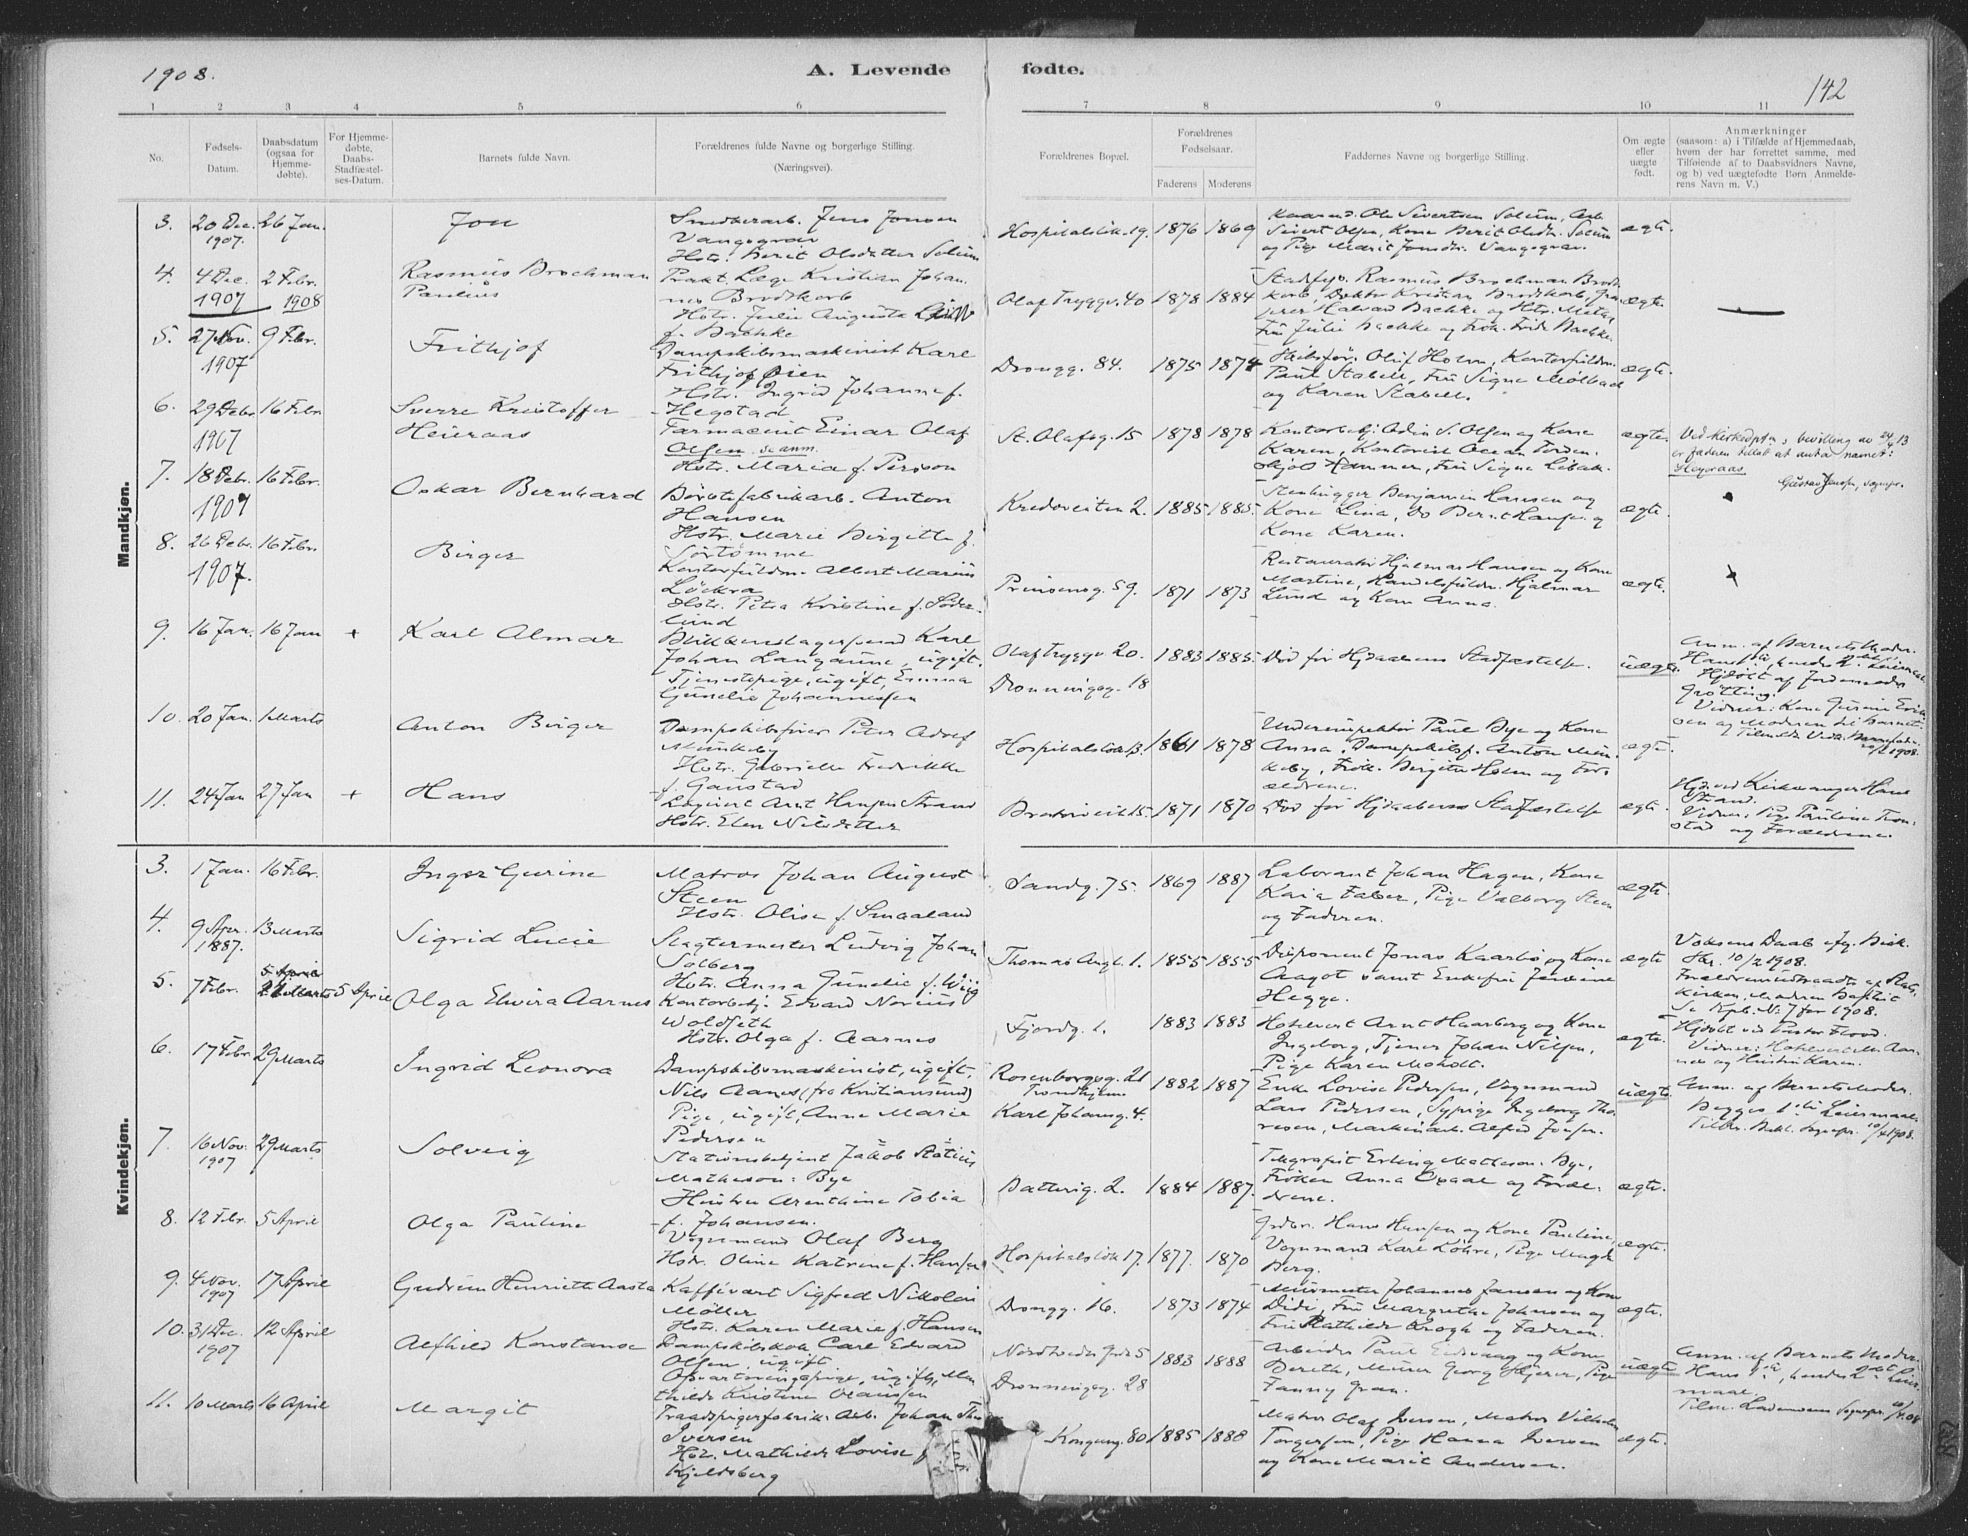 1908.
A. Levende fødte.
142
1 2 3 4 5 6 7 8 9 10 11
No.
Fødsels-
Datum.
Daabsdatum
(ogsaa for
Hjemme-
døbte).
For Hjemme-
døbte,
Daabs-
Stadfæstel-
ses-Datum.
Barnets fulde Navn.
Forældrenes fulde Navne og borgerlige Stilling.
(Næringsvei).
Forældrenes Bopæl.
Forældrenes
Fødselsaar.
Faderens
Moderens
Faddernes Navne og borgerlige Stilling.
Om ægte
eller
uægte
født.
Anmærkninger
(saasom: a) i Tilfælde af Hjemmedaab,
hvem der har forrettet samme, med
Tilføiende af to Daabsvidners Navne,
og b) ved uægtefødte Børn Anmelde-
rens Navn m. V.)
Mandkjøn.
3. 20 Dec. 1907. 26 Jan. Jon
Smedkerarb. Jens Jonsen
Vangsgrav
Hstr. Berit Olsdatter Solum
Hospitalslök. 19. 1876 1869
Ole Sivertsen Solum, Arb.
Sivert Olsen, Kone Berit Olsdtr. Solum
og Pige Marit Jensdtr. Vangsgrav.
ægte.
4. 4 Dec. 1907 2 Febr. 1908
Rasmus Brochman
Paulius
Prakt. Læge Kristian Johan
nes Brodtkorb
Hstr. Julie Augusta
f. Bachke
Olaf Tryggv. 40 1878 1884
Stadfys. Rasmus Brochman Brodt
korb, Doktor Kristian Brodtkorb,
Halvard Bachke og Hstr. Meta,
Fru Julie Bachke og Frök. Frida Bachke.
ægte.
5. 27 Nov. 1907 9 Febr. Frithjof
Dampskibsmaskinist Karl
Frithjof Øien
Hstr. Ingrid Johanne f.
Hegstad
Drongg. 84. 1875 1874
Skibsför. Oluf Holm, Kontorfuldm.
Paul Stabell, Fru Signe Mølbach
og Karen Stabell.
ægte.
6. 29 Debr. 1907 16 Febr.
Sverre Kristoffer
Heieraas
Farmaceut Einar Olaf
Olsen se anm.
Hstr. Maria f. Persson
St. Olafsg. 15 1878 1878
Kontorbetj. Odin S. Olsen og Kone
Karen, Kontorist Oscar Torden-
skjold Hammer, Fru Signe
ægte.
Ved Kirkedpt.s bevilling av 24/4 13
er faderen tillatt at anta navnet:
Heyeraas
Gustav Jensen, sognepr.
7. 18 Debr. 1907 16 Febr. Oskar Bernhard
Börstefabrikarb. Anton
Hansen
Hstr. Marie Birgitte f.
Sörtömme
Kredoveiten 2. 1885 1885.
Stenhugger Benjamin Hansen og
Kone Lina, Do Bernt Hansen og
Kone Karen.
ægte.
8. 26 Debr. 1907. 16 Febr. Birger
Kontorfuldm. Albert Marius
Löckra
Hstr. Petra Kristine f. Söder-
lund
Prinsensg. 59. 1871 1873
Restauratör Hjalmar Hansen og Kone
Martine, Handelsfuldm. Hjalmar
Lund og Kone Anna.
ægte.
9. 16 Jan. 16 Jan + Karl Almar
Blikkenslagersvend Karl
Johan Langaune, ugift.
Tjenestepige, ugift, Emma
Gunelie Johannessen
Olaf Tryggv. 20. 1883 1885.
Dronningsg. 18
Död för Hjdaabens Stadfæstelse.
uægte.
Anm. af Barnets Moder.
Hjdöbt af Jordemoder
Grötting.
Vidner: Kone Gurine Erik
sen og Moderen til Barnet.
10. 20 Jan. 1 Marts Anton Birger
Dampskibsfører Peter Adolf
Munkeby
Hstr. Gabrielle Fredrikke
f. Gaustad
Hospitalslök. 13. 1861 1878
Underinspektör Paul Bye og Kone
Anna, Dampskibsf. Anton Mun
keby, Frök. Birgitte Holm og For
ældrene.
ægte.
11. 24 Jan 27 Jan + Hans
Logivert Arnt Hansen Strand
Hstr. Elen Nilsdatter
Brattörveit. 15. 1871 1870
Död för Hjdaabens Stafæstelse
ægte.
Hjd. ved Kirkesanger Hans
Strand.
Vidner: Pige Pauline Tron-
stad og Forældrene.
Kvindekjøn.
3. 1 Jan. 16 Febr. Inger Gurine
Matros Johan August
Steen
Hstr. Olise f. Smaaland
Sandg. 75. 1869 1887
Laborant Johan Hagen, Kone
Kaia Faber, Pige Valborg Steen
og Faderen.
ægte.
4. 9 Apr. 1887. 13 Marts Sigrid Lucie
Slagtermester Ludvig Johan
Solberg
Hstr. Anna Gunelie f. Wiig
Thomas Angl. 1. 1855 1855
Disponent Jonas Kaarbö og Kone
Aagot samt Enkefru Jensine
Hegge.
ægte
Voksens Daab efg. Bisk.
Skr. 10/2 1908.
Forældrene udtraadte af Stats
kirken, Moderen Baptist
Se Kpb. No 7 for 1908.
5. 7 Febr. 21 Marts 5 April Olga Elvira Aarnes
Kontorbetj. Edvard Norius
Woldseth
Hstr. Olga f. Aarnes
Fjordg. 1. 1883 1883
Hotelvert Arnt Haarberg og Kone
Ingeborg, Tjener Johan Nilsen,
Pige Karen Moholdt.
ægte.
Hjdöbt ved Pastor Flood.
Vidner: Hotelvert M. Aar-
nes og Hustru Karen.
6. 17 Febr. 29 Marts Ingrid Leonora
Dampskibsmaskinist, ugift,
Nils Aanes (fra Kristiansund)
Pige, ugift, Anne Marie
Pedersen
Rosenborgsg. 21
Trondhjem
Karl Johansg. 4.
1882 1887
Enke Lovise Pedersen, Vognmand
Lars Pedersen, Sypige Ingeborg Tho
resen, Maskinarb. Alfred Jensen.
uægte.
Anm. af Barnets Moder.
Begges 1ste Leiermaal.
7. 16 Nov. 1907 29 Marts Solveig
Stationsbetjent Jakob Statius
Matheson Bye
Hustru Arenthine Tobia
f. Johansen.
Batterig. 2. 1884 1887.
Telegrafist Erling Matheson Bye,
Fröken Anna Opaal og Foræl-
drene.
ægte.
8. 12 Febr. 5 April Olga Pauline
Vognmand Olaf Berg
Hstr. Oline Katrine f. Hansen
Hospitalslök 17. 1877. 1870
Grdbr. Hans Hansen og Kone Pauline,
Vognmand Karl Löhre, Pige Magda
Berg.
ægte.
9. 4 Nov. 1907 17 April Gudrun Henriette Aasta
Kaffivert Sigfred Nikolai
Möller
Hstr. Karen Marie f. Hansen
Drongg. 16. 1873 1874
Murmester Johannes Jansen og Kone
Didi, Fru Margrethe Johnsen og
Fru Mathilde Krogh og Faderen.
ægte.
10. 31 Dec. 1907 12 April Alfhild Konstanse
Dampskibskok Carl Edvard
Olsen, ugift
Opvartningspige, ugift, Ma
thilde Kristine Olaussen
Nordtvedts Grd. 5 1883 1888
Dronningsg. 28
Arbeider Paul Eidsvaag og Kone
Bereth, Murer Georg Stjerer, Pige
Fanny Gran.
uægte
Anm. af Barnets Moder.
11. 10 Marts 16 April Margit
Traadspigerfabrik. Arb. Johan
Iversen
Hstr. Mathilde Lovise f.
Kjeldsberg
Kongensg. 80 1885 1888
Matros Olaf Iversen, Matros Vilhelm
Torgersen, Pige Hanna Iversen
og Kone Marit Andersen.
ægte.